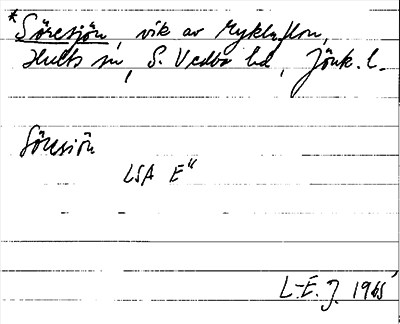 *Söresjön, vik av Mycklaflon,
Hults sn, S. Vedbo hd, Jönk. l.
Söresjön
LSA E"
L-E. J. 1965